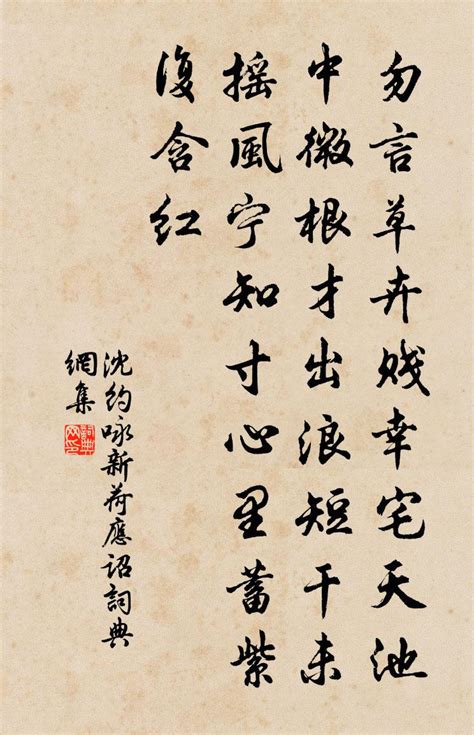 勿言草卉贱幸宅天池
中微根才出浪短干未
摇風宁知寸心里蓄紫
復含红
沈约咏新荷應诏詞典
網集
詞典网印